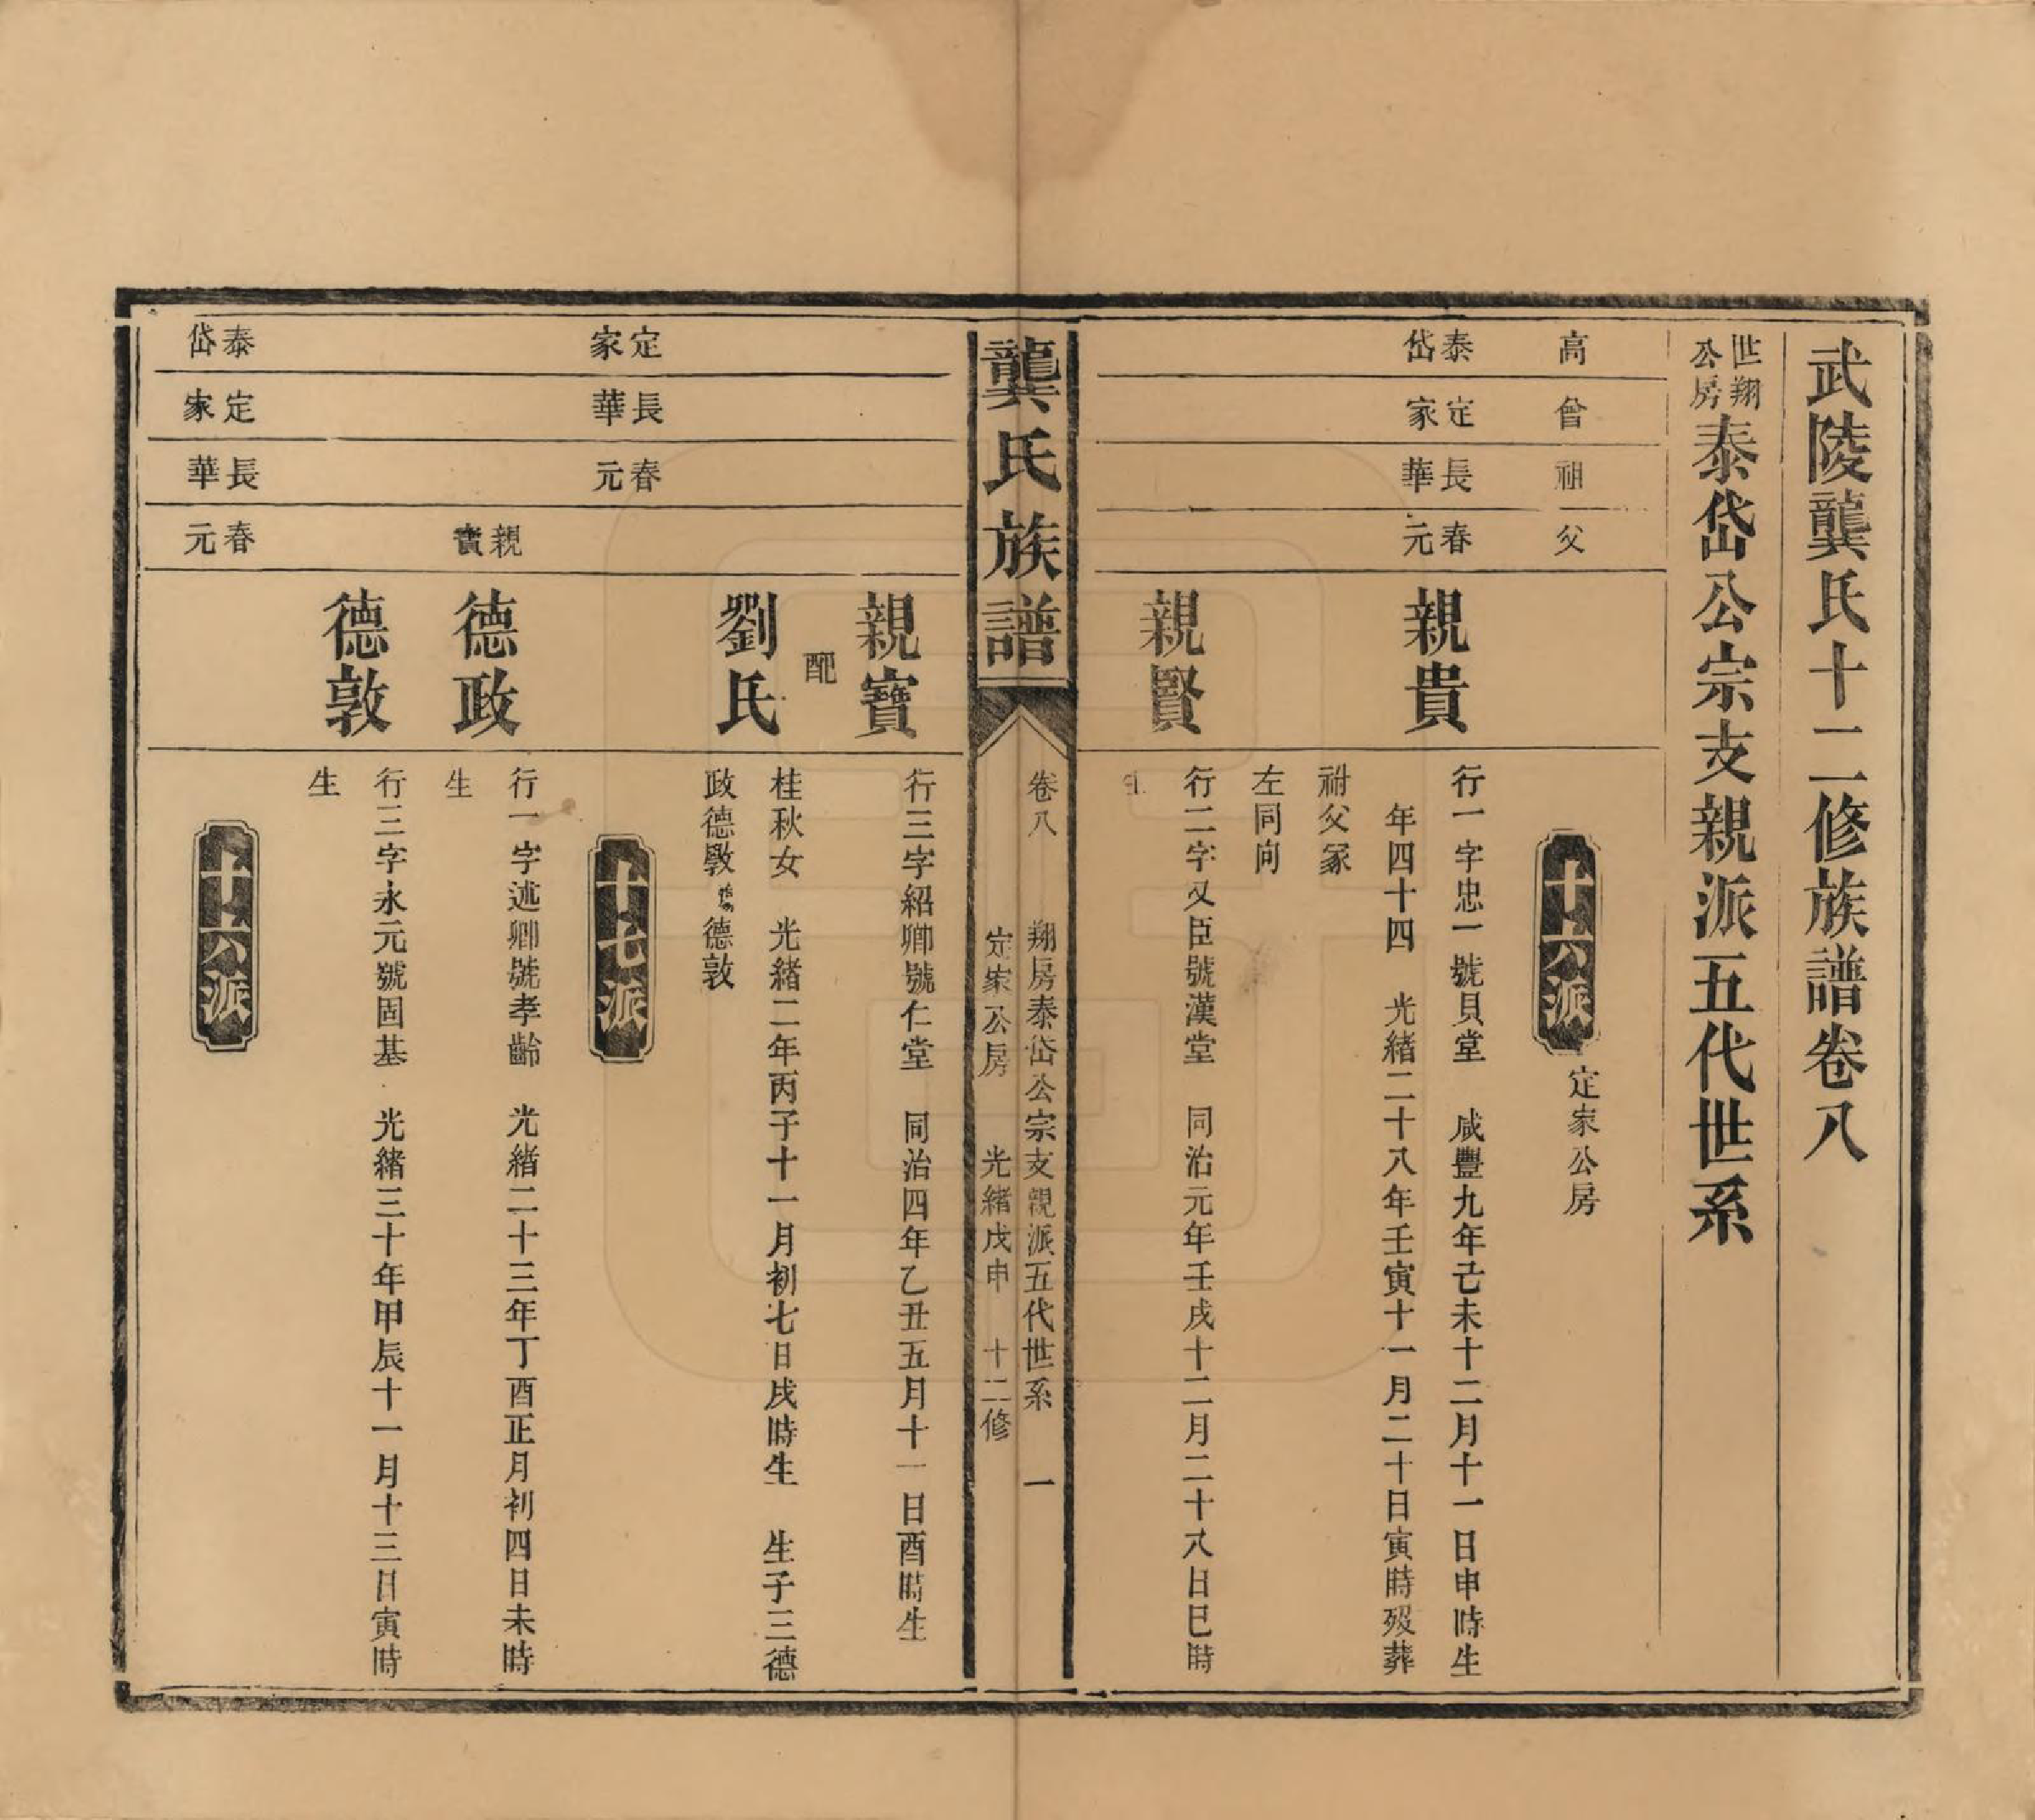 武陵龔氏十二修族譜卷八
世翔公房泰岱公宗支親派五代世系
高
曾
祖
父
十六派
定家公房
泰岱
定家
長華
春元
親貴
行一字忠一號貝堂　咸豐九年己未十二月十一日申時生
年四十四　光緒二十八年壬寅十一月二十日寅時歿葬
祔父冢
左同向
親賢
行二字又臣號漢堂　同治元年壬戌十二月二十八日巳時
生
龔氏族譜
卷八　翔房泰岱公宗支親派五代世系　一
定家公房　光緒戊申　十二修
親寶
行三字紹卿號仁堂　同治四年乙丑五月十一日酉時生
配
劉氏
桂秋女　光緒二年丙子十一月初七日戌時生　生子三德
政德斆　德敦
定家
長華
春元
十七派
親寶
德政
行一字述卿號孝齡　光緒二十三年丁酉正月初四日未時
生
德敦
行三字永元號固基　光緒三十年甲辰十一月十三日寅時
生
泰岱
定家
長華
春元
十六派